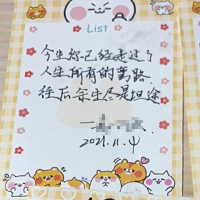 List
今生你已经走过了
人生所有的弯路
往后余生尽是坦途
2021.11.4